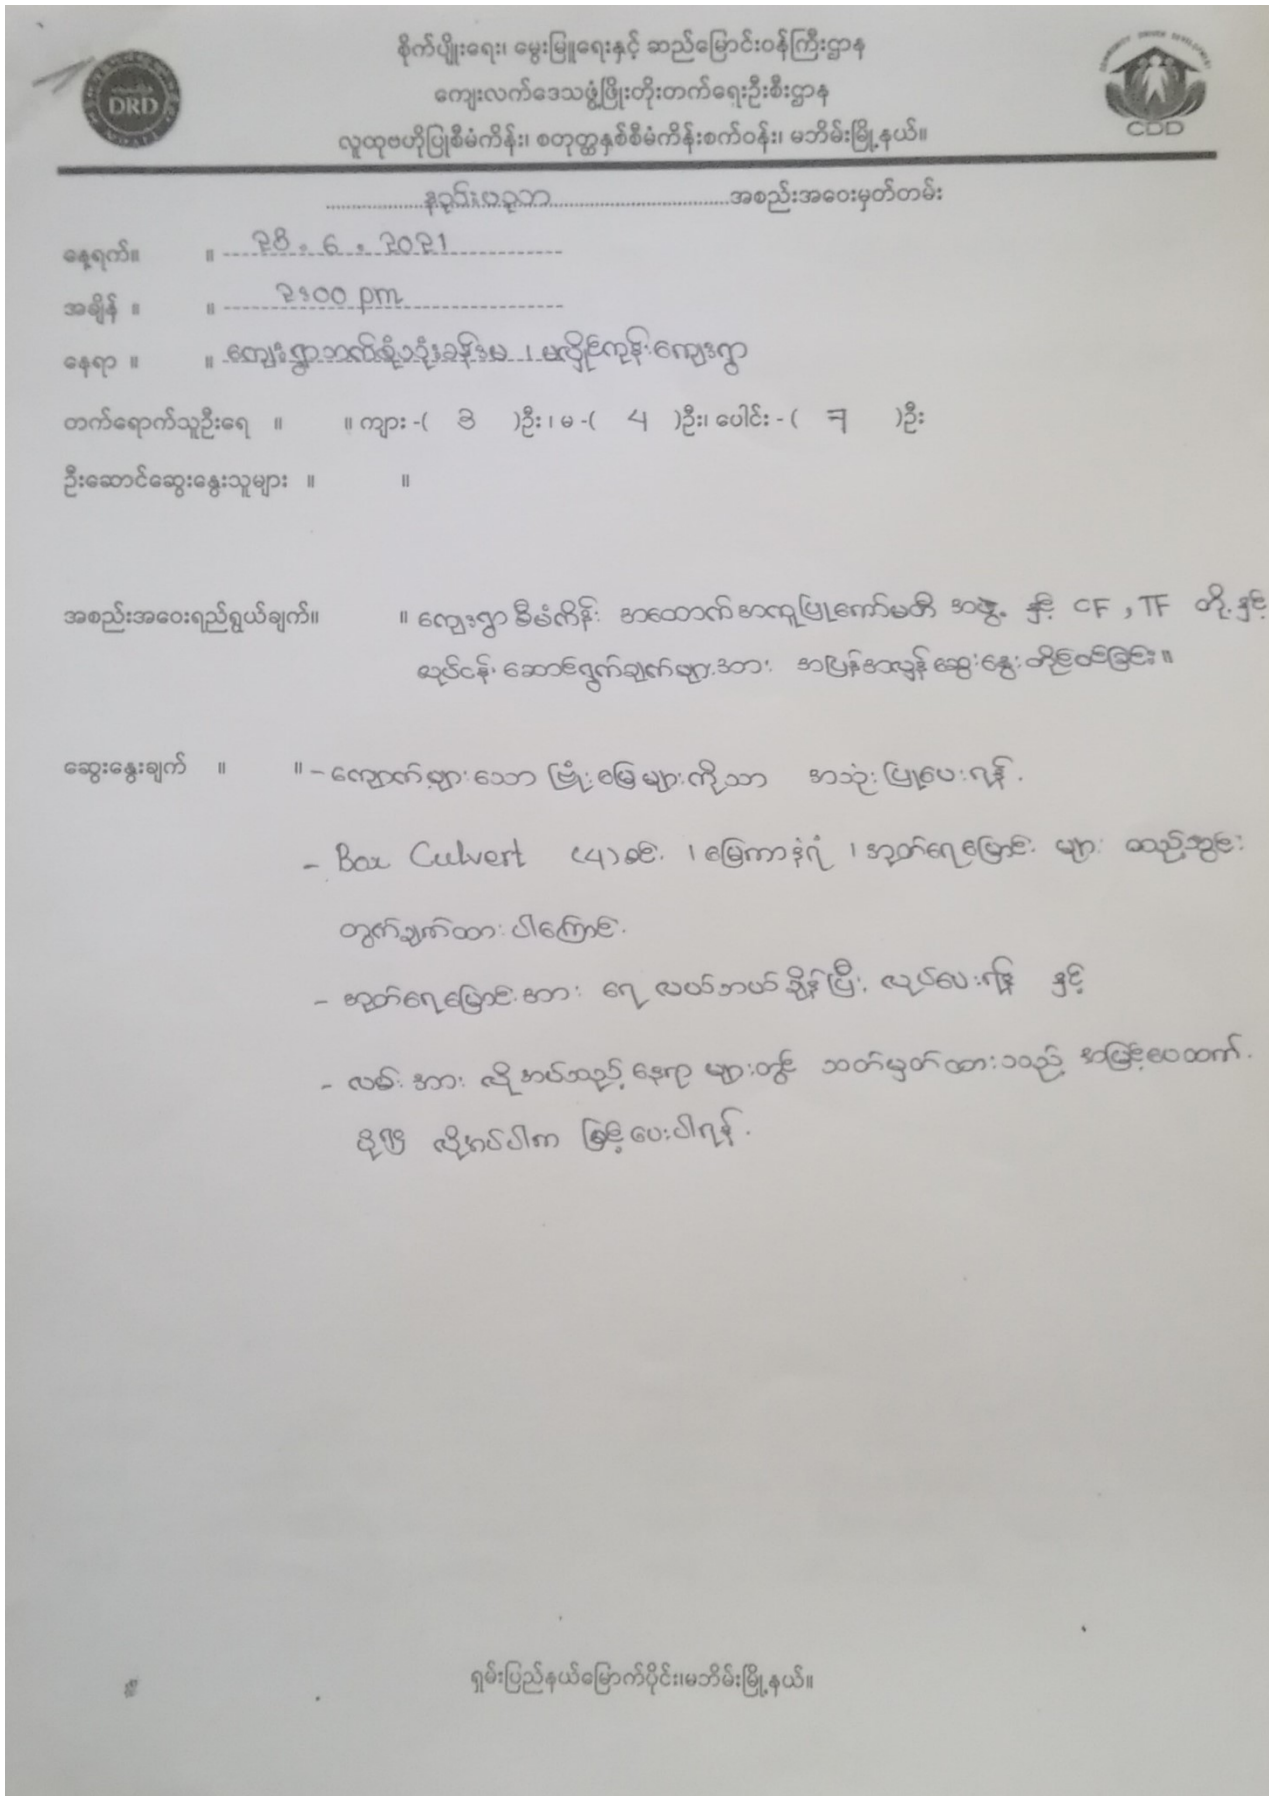 စိုက်ပျိုးရေး၊ မွေးမြူရေးနှင့် ဆည်မြောင်းဝန်ကြီးဌာန
ကျေးလက်ဒေသဖွံ့ဖြိုးတိုးတက်ရေးဦးစီးဌာန
လူထုဗဟိုပြုစီမံကိန်း၊ စတုတ္ထနှစ်စီမံကိန်းစက်ဝန်း၊ မဘိမ်းမြို့နယ်။
DRD
COMMUNITY DRIVEN DEVELOPMENT
CDD
နည်းပညာ အစည်းအဝေးမှတ်တမ်း
နေ့ရက်။ ။ 28.6.2021
အချိန် ။ ။ 2:00 pm
နေရာ ။ ။ ကျေးရွာဘက်စုံသုံးခန်းမ ၊ မလှိုင်ကုန်းကျေးရွာ
တက်ရောက်သူဦးရေ ။ ။ ကျား -( 3 )ဦး ၊ မ -( 4 )ဦး၊ ပေါင်း - ( 7 )ဦး
ဦးဆောင်ဆွေးနွေးသူများ ။ ။
အစည်းအဝေးရည်ရွယ်ချက်။ ။ ကျေးရွာစီမံကိန်း အထောက်အကူပြုကော်မတီ အဖွဲ့ နှင့် CF , TF တို့နှင့်
လုပ်ငန်းဆောင်ရွက်ချက်များအား အပြန်အလှန်ဆွေးနွေးတိုင်ပင်ခြင်း။
ဆွေးနွေးချက် ။ ။ - ကျောက်များသော မြေများကိုသာ အသုံးပြုပေးရန်.
- Box Culvert (၄)စင်း ၊ မြေကာနံရံ ၊ အုတ်ရေမြောင်း များ ထည့်သွင်း
တွက်ချက်ထားပါကြောင်း.
- အုတ်ရေမြောင်းအား ရေ လယ်ဘယ်ချိန်ပြီး လုပ်ပေးရန် နှင့်
- လမ်းအား လိုအပ်သည့်နေရာများတွင် သတ်မှတ်ထားသည့် အမြင့်ပေထက်.
ပို၍ လိုအပ်ပါက မြှင့်ပေးပါရန်.
ရှမ်းပြည်နယ်မြောက်ပိုင်း၊မဘိမ်းမြို့နယ်။